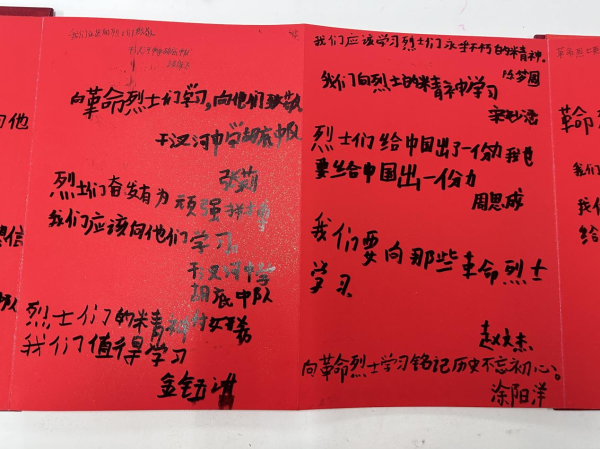 向革命烈士们学习,向他们致敬
于汊河中学胡底中队
张莉
烈士们奋发有为顽强拼搏
我们应该向他们学习。
于汊河中学
胡底中队
烈士们的精神付如善
我们值得学习
我们应该学习烈士们永垂不朽的精神。
陈梦圆
我们向烈士的精神学习
宋妙洁
烈士们给中国出了一份力我也
要给中国出一份力
周思成
我们要向那些革命烈士
学习
赵文杰
向革命烈士学习铭记历史不忘初心。
涂阳洋
革命
我们
我们
给